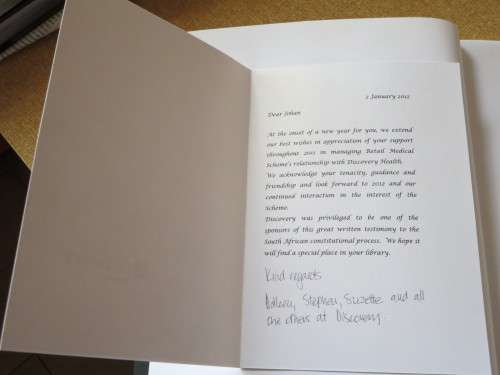 2 January 2012
Dear Johan
At the onset of a new year for you, we extend
our best wishes in appreciation of your support
throughout 2011 in managing Retail Medical
Scheme's relationship with Discovery Health.
We acknowledge your tenacity, guidance and
friendship and look forward to 2012 and our
continued interaction in the interest of the
Scheme.
Discovery was privileged to be one of the
sponsors of this great written testimony to the
South African constitutional process. We hope it
will find a special place in your library.
Kind regards
Stephen, Suzette and all
the others at Discovery.